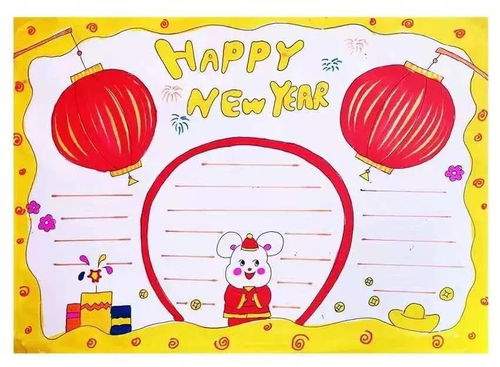 HAPPY
NEW YEAR